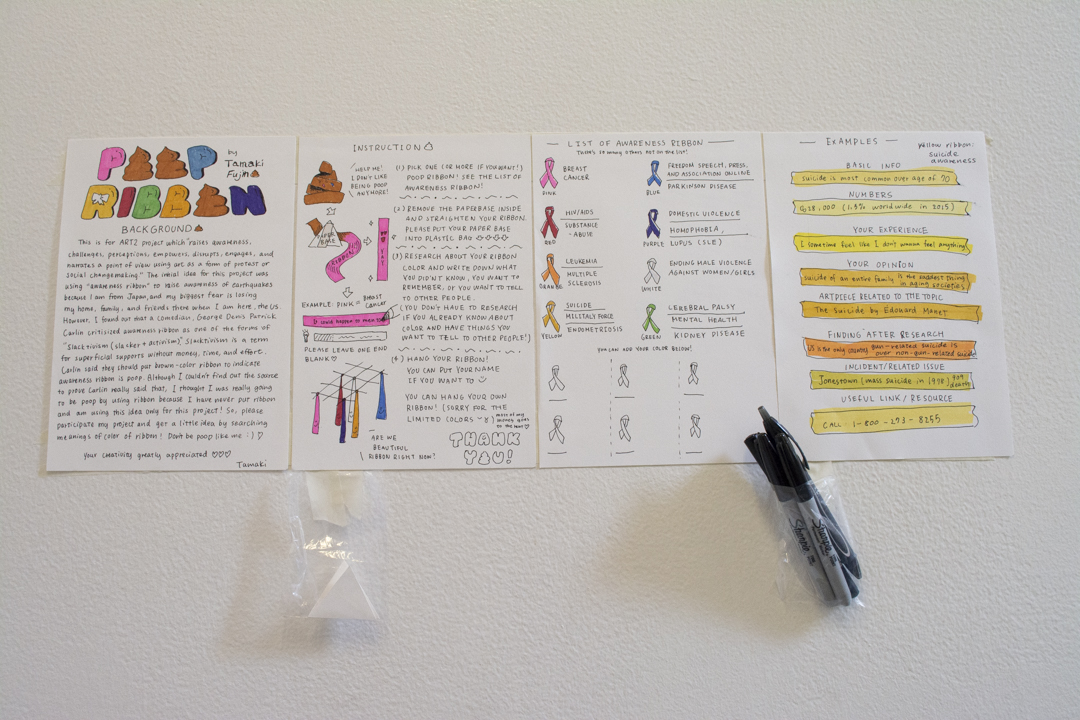 POOP
by
Tamaki
Fujino
RIBBON
BACKGROUND
This is for ART2 project which "raises awareness,
challenges, perceptions, empowers, disrupts, engages, and
narrates a point of view using art as a form of protest or
social changemaking." The inicial idea for this project was
using "awareness ribbon" to raise awareness of earthquakes
because I am from Japan, and my biggest fear is losing
my home, family, and friends there when I am here, the US.
However, I found out that a comedian, George Denis Patrick
Carlin critisized awareness ribbon as one of the forms of
"Slacktivism (slacker + activism)" Slacktivism is a term
for superficial supports without money, time, and effort.
Carlin said they should put brown-color ribbon to indicate
awareness ribbon is poop. Although I couldn't find out the source
to prove Carlin really said that, I thought I was really going
to be poop by using ribbon because I have never put ribbon
and am using this idea only for this project! So, please
participate my project and get a little idea by searching
meanings of color of ribbon! Don't be poop like me :) ♡
your creativity greatly appreciated ♡♡♡
Tamaki
INSTRUCTION
HELP ME!
I DON'T LIKE
BEING POOP
ANYMORE!
PAPER
BASE
RIBBON
YAY
EXAMPLE: PINK = BREAST
CANCER
It could happen to men too
PLEASE LEAVE ONE END
BLANK ♡
ARE WE
BEAUTIFUL
RIBBON RIGHT NOW?
(1) PICK ONE (OR MORE IF YOU WANT!)
POOP RIBBON! SEE THE LIST OF
AWARENESS RIBBON!
(2) REMOVE THE PAPERBASE INSIDE
AND STRAIGHTEN YOUR RIBBON.
PLEASE PUT YOUR PAPER BASE
INTO PLASTIC BAG
(3) RESEARCH ABOUT YOUR RIBBON
COLOR AND WRITE DOWN WHAT
YOU DIDN'T KNOW, YOU WANT TO
REMEMBER, OR YOU WANT TO TELL
TO OTHER PEOPLE.
(YOU DON'T HAVE TO RESEARCH
IF YOU ALREADY KNOW ABOUT
COLOR AND HAVE THINGS YOU
WANT TO TELL TO OTHER PEOPLE!)
(4) HANG YOUR RIBBON!
YOU CAN PUT YOUR NAME
IF YOU WANT TO
YOU CAN HANG YOUR OWN
RIBBON! (SORRY FOR THE
LIMITED COLORS
most of my
money goes
to the laser ♡)
THANK
YOU!
LIST OF AWARENESS RIBBON
There's so many others not on the list!
PINK
BREAST
CANCER
RED
HIV/AIDS
SUBSTANCE
-ABUSE
ORANGE
LEUKEMIA
MULTIPLE
SCLEROSIS
YELLOW
SUICIDE
MILITALY FORCE
ENDOMETRIOSIS
BLUE
FREEDOM SPEECH, PRESS,
AND ASSOCIATION ONLINE
PARKINSON DISEASE
PURPLE
DOMESTIC VIOLENCE
HOMOPHOBIA,
LUPUS (SLE)
WHITE
ENDING MALE VIOLENCE
AGAINST WOMEN/GIRLS
GREEN
CEREBRAL PALSY
MENTAL HEALTH
KIDNEY DISEASE
YOU CAN ADD YOUR COLOR BELOW!
EXAMPLES
yellow ribbon:
suicide
awareness
BASIC INFO
Suicide is most common over age of 70
NUMBERS
828,000 (1.5% worldwide in 2015)
YOUR EXPERIENCE
I sometime feel like I don't wanna feel anything
YOUR OPINION
Suicide of an entire family is the saddest thing
in aging societies
ARTPIECE RELATED TO THE TOPIC
The Suicide by Edouard Manet
FINDING AFTER RESEARCH
US is the only country gun-related suicide is
over non-gun-related suicide
INCIDENT/RELATED ISSUE
Jonestown (mass suicide in 1978) 909
deaths
USEFUL LINK/RESOURCE
CALL: 1-800-273-8255
Sharpie
Sharpie